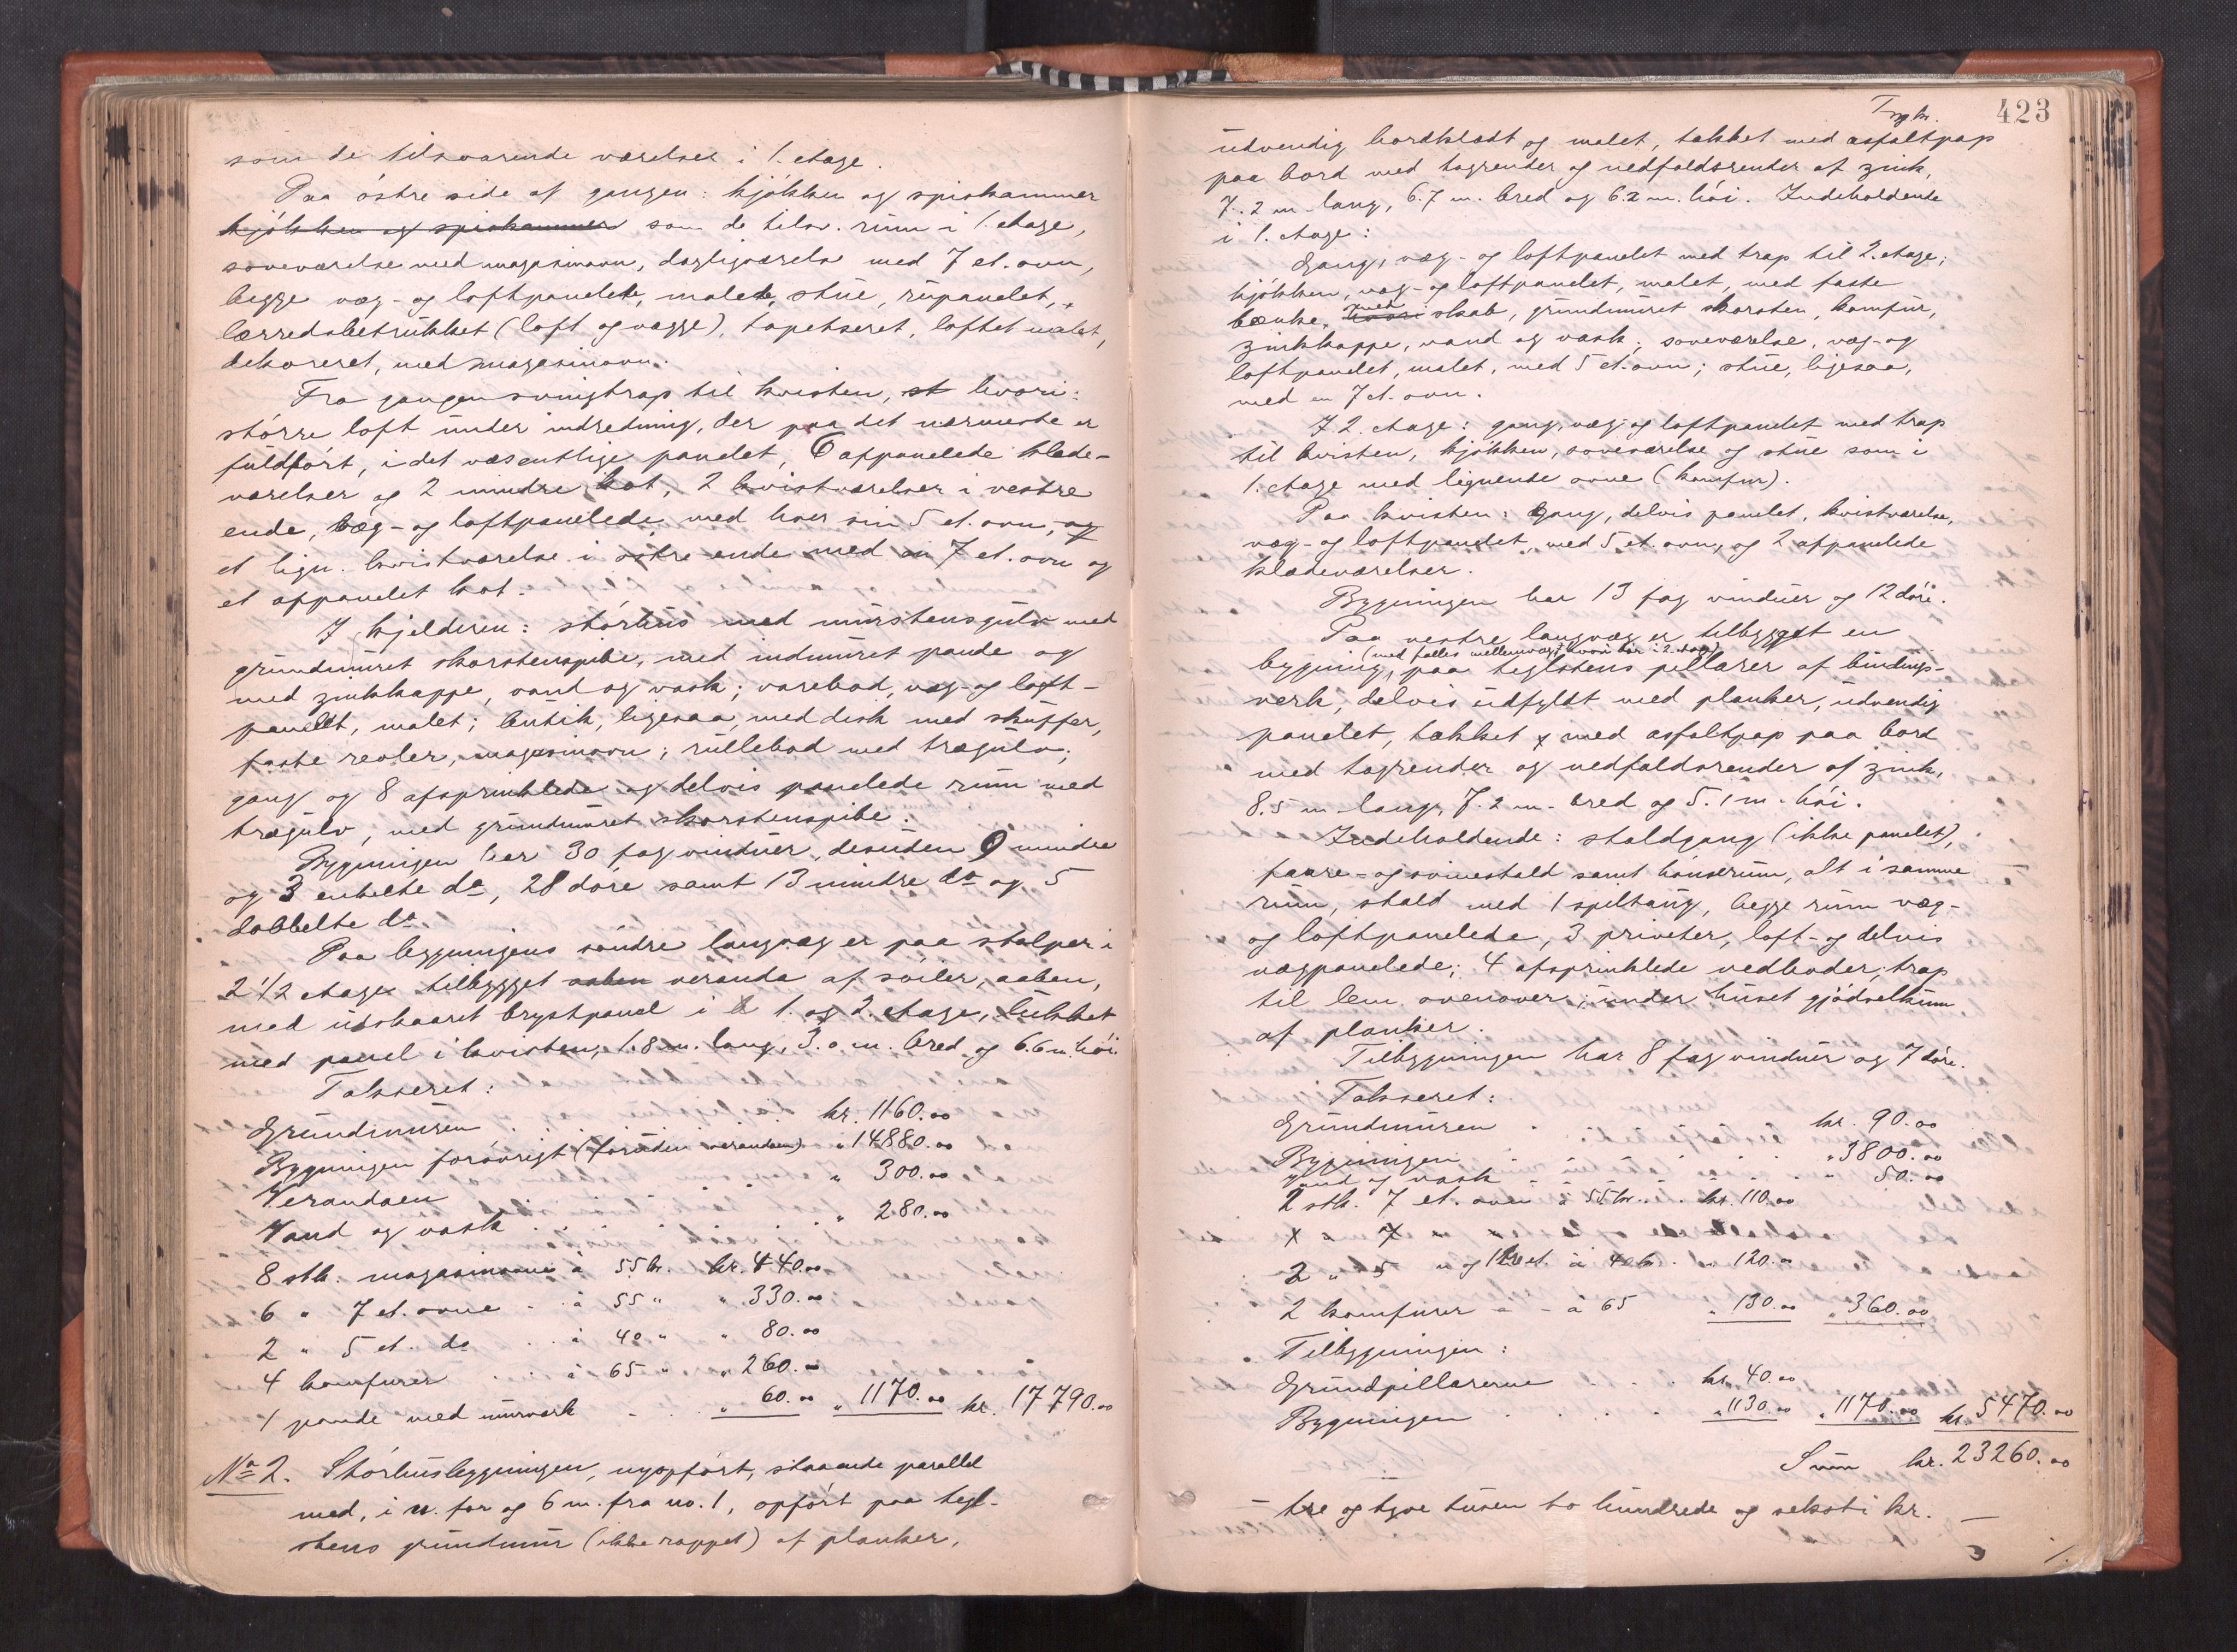 som de tilsvarende værelser i 1. etage.
Paa östre side af gangen: kjökken og spiskammer
kjökken og spiskammer som de tilsv. rum i 1. etage,
soveværelse med magasinovn, dagligværelse med 7 et. ovn,
begge væg- og loftpanelede, malede, stue, rupanelet,
lærredsbetrukket (loft og vægge), tapetseret, loftet malet,
dekoreret, med magasinovn.
Fra gangen svingtrap til kvisten, hvori:
större loft under indredning, der paa det nærmeste er
fuldfört, i det væsentlige panelet, 6 afpanelede klæde-
værelser og 2 mindre kot, 2 kvistværelser i vestre
ende, væg- og loftpanelede med hver sin 5 et. ovn, og
et lign. kvistværelse i östre ende med en 7 et. ovn og
et afpanelet kot.
I kjelderen: störhus med murstensgulv med
grundmuret skorstenspibe, med indmuret pande og
med zinkkappe, vand og vask; varebod, væg- og loft-
panelt, malet; butik, ligesaa, med disk med skuffer,
faste reoler, magasinovn; rullebod med trægulv;
gang og 8 afsprinklede og delvis panelede rum med
trægulv, med grundmuret skorstenspibe.
Bygningen har 30 fag vinduer, desuden 9 mindre
og 3 enkelte do, 28 döre samt 13 mindre do og 5
dobbelte do.
Paa bygningens söndre langvæg er paa stolper i
2 1/2 etage tilbygget aaben veranda af söiler, aaben,
med udskaaret brystpanel i 1. og 2. etage, lukket
med panel i kvisten, 1.8 m. lang, 3.0 m. bred og 6.6 m. höi.
Takseret:
Grundmuren . . . kr. 1160.00
Bygningen forövrigt (foruden verandaen) " 14880.00
Verandaen . . . " 300.00
Vand og vask . . . " 280.00
8 stk. magasinovne à 55 kr. kr. 440.00
6 " 7 et. ovne . à 55 " " 330.00
2 " 5 et. do . . à 40 " " 80.00
4 komfurer . . . à 65 " " 260.00
1 pande med murværk . . " 60.00 " 1170.00 kr. 17790.00
No 2. Störhusbygningen, nyopfört, staaende parallel
med, i n. for og 6 m. fra no. 1, opfört paa tegl-
stens grundmur (ikke rappet) af planker,
423
udvendig bordklædt og malet, tækket med asfaltpap
paa bord med tagrender og nedfaldsrender af zink,
7.2 m. lang, 6.7 m. bred og 6.2 m. höi. Indeholdende
i 1. etage:
Gang, væg- og loftpanelet med trap til 2. etage;
kjökken, væg- og loftpanelet, malet, med faste
bænke, med skab, grundmuret skorsten, komfur,
zinkkappe, vand og vask; soveværelse, væg- og
loftpanelet, malet, med 5 et. ovn; stue, ligesaa,
med en 7 et. ovn.
I 2. etage: gang, væg- og loftpanelet med trap
til kvisten, kjökken, soveværelse og stue som i
1. etage med lignende ovne (komfur).
Paa kvisten: Gang, delvis panelet, kvistværelse,
væg- og loftpanelet, med 5 et. ovn, og 2 afpanelede
klædeværelser.
Bygningen har 13 fag vinduer og 12 döre.
Paa vestre langvæg er tilbygget en
(med fælles mellemvæg, hvori dör i 2. etage)
bygning, paa teglstens pillarer af bindings-
verk, delvis udfyldt med planker, udvendig
panelet, tækket med asfaltpap paa bord
med tagrender og nedfaldsrender af zink,
8.5 m. lang, 7.2 m. bred og 5.1 m. höi.
Indeholdende: staldgang (ikke panelet),
faare- og svinestald samt hönserum, alt i samme
rum, stald med 1 spiltaug, begge rum væg-
og loftpanelede, 3 priveter, loft- og delvis
vægpanelede; 4 afsprinklede vedboder; trap
til lem ovenover; under huset gjödselkum
af planker.
Tilbygningen har 8 fag vinduer og 7 döre.
Takseret:
Grundmuren . kr. 90.00
Bygningen . . . " 3800.00
Vand og vask . . . " 50.00
2 stk. 7 et. ovne à 55 kr. . . kr. 110.00
2 " 5 " og 1 à 40 kr. . " 120.00
2 komfurer - à 65 " 130.00 " 360.00
Tilbygningen:
Grundpillarerne . . . kr. 40.00
Bygningen . . . . " 1130.00 " 1170.00 kr. 5470.00
Sum kr. 23260.00
– tre og tyve tusen to hundrede og seksti kr. –